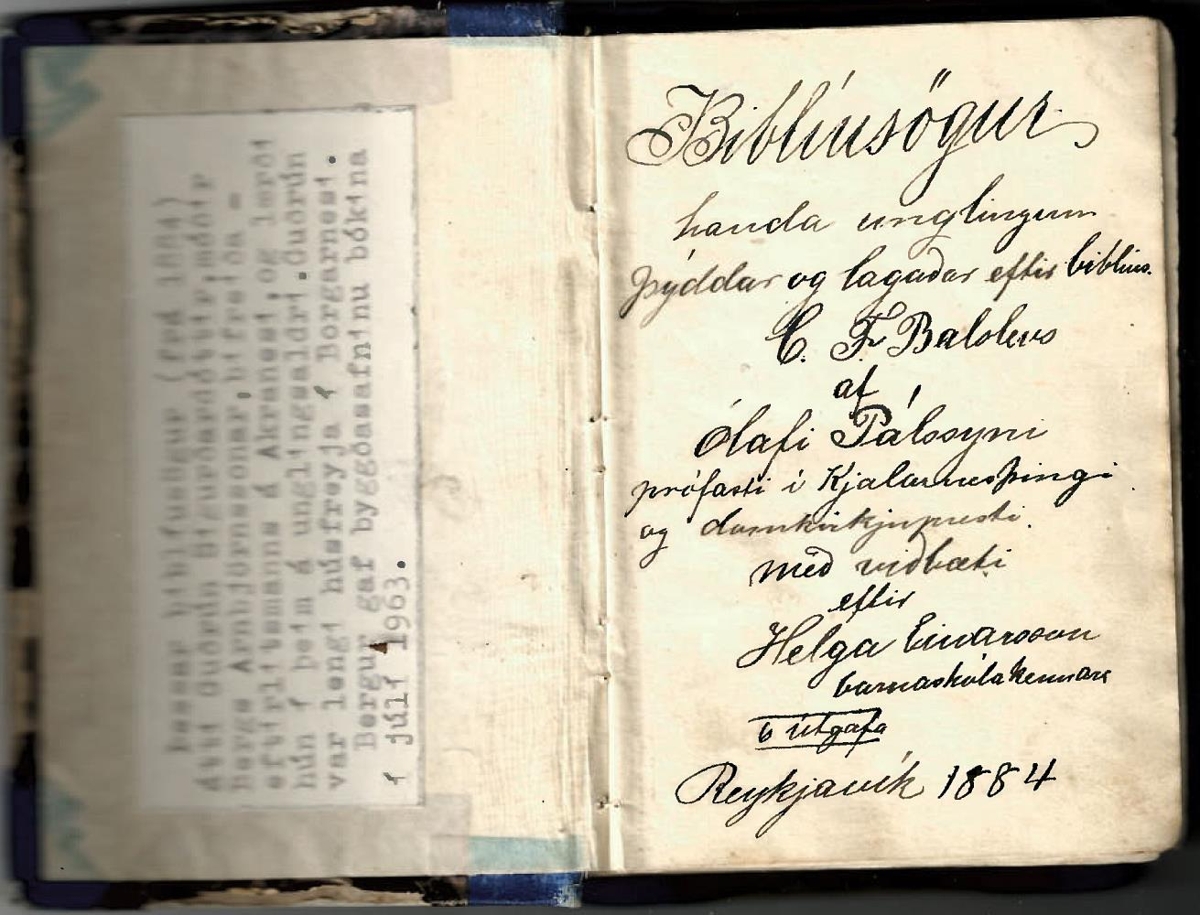 Þessar biblíusögur (frá 1884)
átti Guðrún Sigurðardóttir, móðir
Bergs Arnbjörnssonar, bifreiða =
eftirlitsmanns á Akranesi, og lærði
hún í þeim á unglingsaldri. Guðrún
var lengi húsfreyja í Borgarnesi.
Bergur gaf byggðasafninu bókina
í júlí 1963.
Biblíusögur
handa unglingum
þýddar og lagaðar eftir biblíus.
C. F. Balslevs
af
Ólafi Pálssyni
prófasti í Kjalarnesþingi
og domkirkjupresti.
með viðbæti
eftir
Helga Einarsson
barnaskólakennara
6 útgáfa
Reykjavík 1884